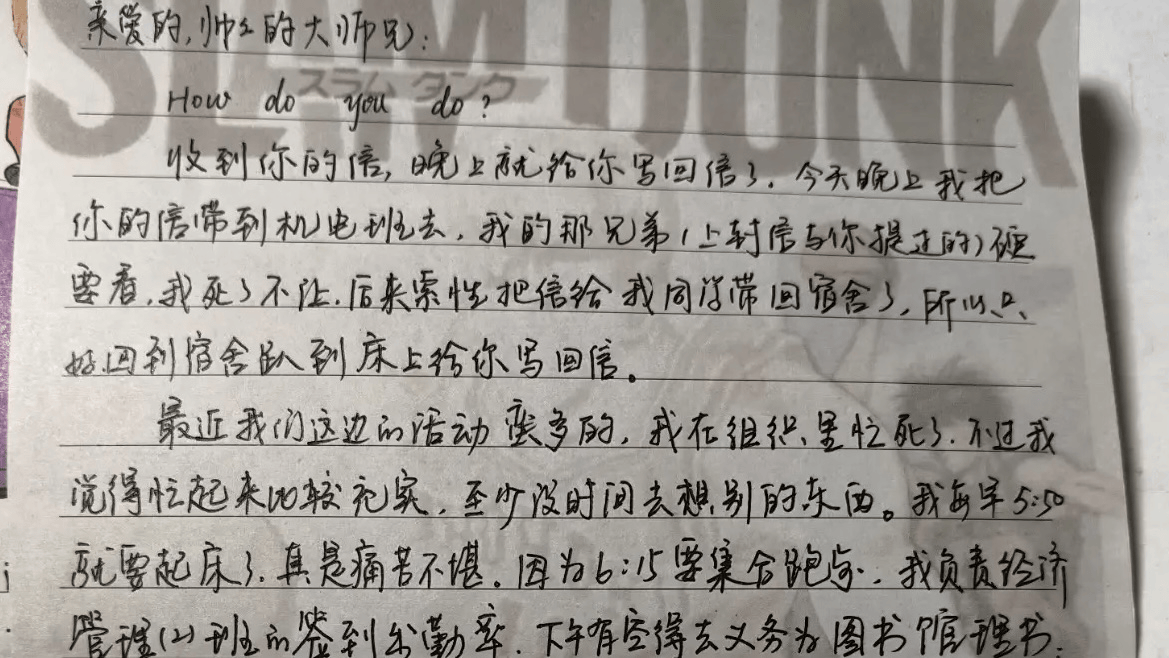 SLAM DUNK
スラムダンク
亲爱的,帅气的大师兄:
How do you do?
收到你的信,晚上就给你写回信了.今天晚上我把
你的信带到机电班去,我的那兄弟(上封信与你提过的)硬
要看,我死了不让.后来索性把信给我同学带回宿舍了,所以只
好回到宿舍趴到床上给你写回信。
最近我们这边的活动蛮多的,我在组织里忙死了.不过我
觉得忙起来比较充实,至少没时间去想别的东西。我每早5:50
就要起床了.真是痛苦不堪.因为6:15要集合跑步.我负责经济
管理(2)班的签到出勤率.下午有空得去义务为图书馆理书.